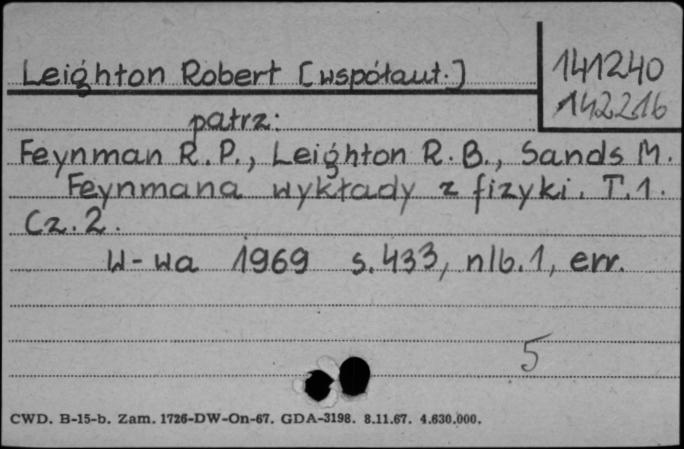 Leighton Robert [współaut.]
141240
142216
patrz:
Feynman R.P., Leighton R.B., Sands M.
Feynmana wykłady z fizyki. T.1.
Cz.2.
W-wa 1969 s.433, nlb.1, err.
5
CWD. B-15-b. Zam. 1726-DW-On-67. GDA-3198. 8.11.67. 4.630.000.